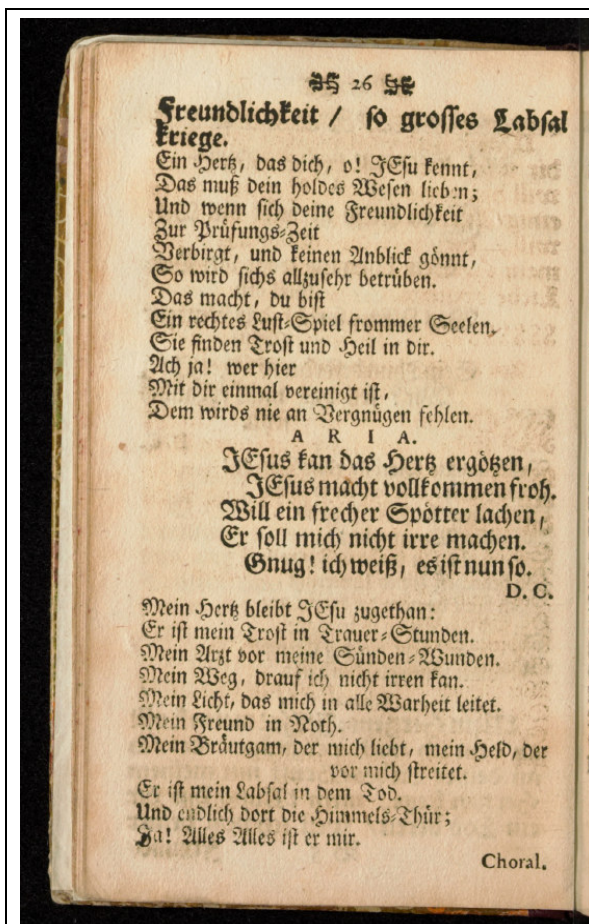 26
Freundlichkeit / so grosses Labsal
kriege.
Ein Hertz, das dich, o! JEsu kennt,
Das muß dein holdes Wesen lieben;
Und wenn sich deine Freundlichkeit
Zur Prüfungs-Zeit
Verbirgt, und keinen Anblick gönnt,
So wird sichs allzusehr betrüben.
Das macht, du bist
Ein rechtes Lust-Spiel frommer Seelen.
Sie finden Trost und Heil in dir.
Ach ja! wer hier
Mit dir einmal vereinigt ist,
Dem wirds nie an Vergnügen fehlen.
A R I A.
JEsus kan das Hertz ergötzen,
JEsus macht vollkommen froh.
Will ein frecher Spötter lachen,
Er soll mich nicht irre machen.
Gnug! ich weiß, es ist nun so.
D. C.
Mein Hertz bleibt JEsu zugethan:
Er ist mein Trost in Trauer-Stunden.
Mein Arzt vor meine Sünden-Wunden.
Mein Weg, drauf ich nicht irren kan.
Mein Licht, das mich in alle Warheit leitet.
Mein Freund in Noth.
Mein Bräutgam, der mich liebt, mein Held, der
vor mich streitet.
Er ist mein Labsal in dem Tod.
Und endlich dort die Himmels-Thür;
Ja! Alles Alles ist er mir.
Choral.